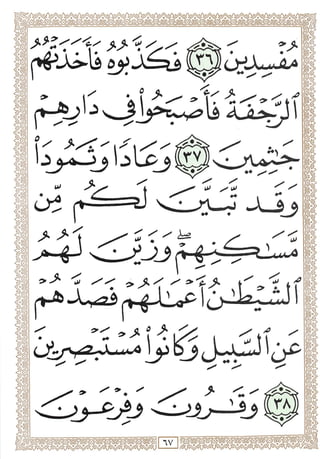 مُفْسِدِينَ ٣٦ فَكَذَّبُوهُ فَأَخَذَتْهُمُ
ٱلرَّجْفَةُ فَأَصْبَحُوا۟ فِى دَارِهِمْ
جَٰثِمِينَ ٣٧ وَعَادًا وَثَمُودَا۟
وَقَد تَّبَيَّنَ لَكُم مِّن
مَّسَٰكِنِهِمْ ۖ وَزَيَّنَ لَهُمُ
ٱلشَّيْطَٰنُ أَعْمَٰلَهُمْ فَصَدَّهُمْ
عَنِ ٱلسَّبِيلِ وَكَانُوا۟ مُسْتَبْصِرِينَ
٣٨ وَقَٰرُونَ وَفِرْعَوْنَ
٦٧